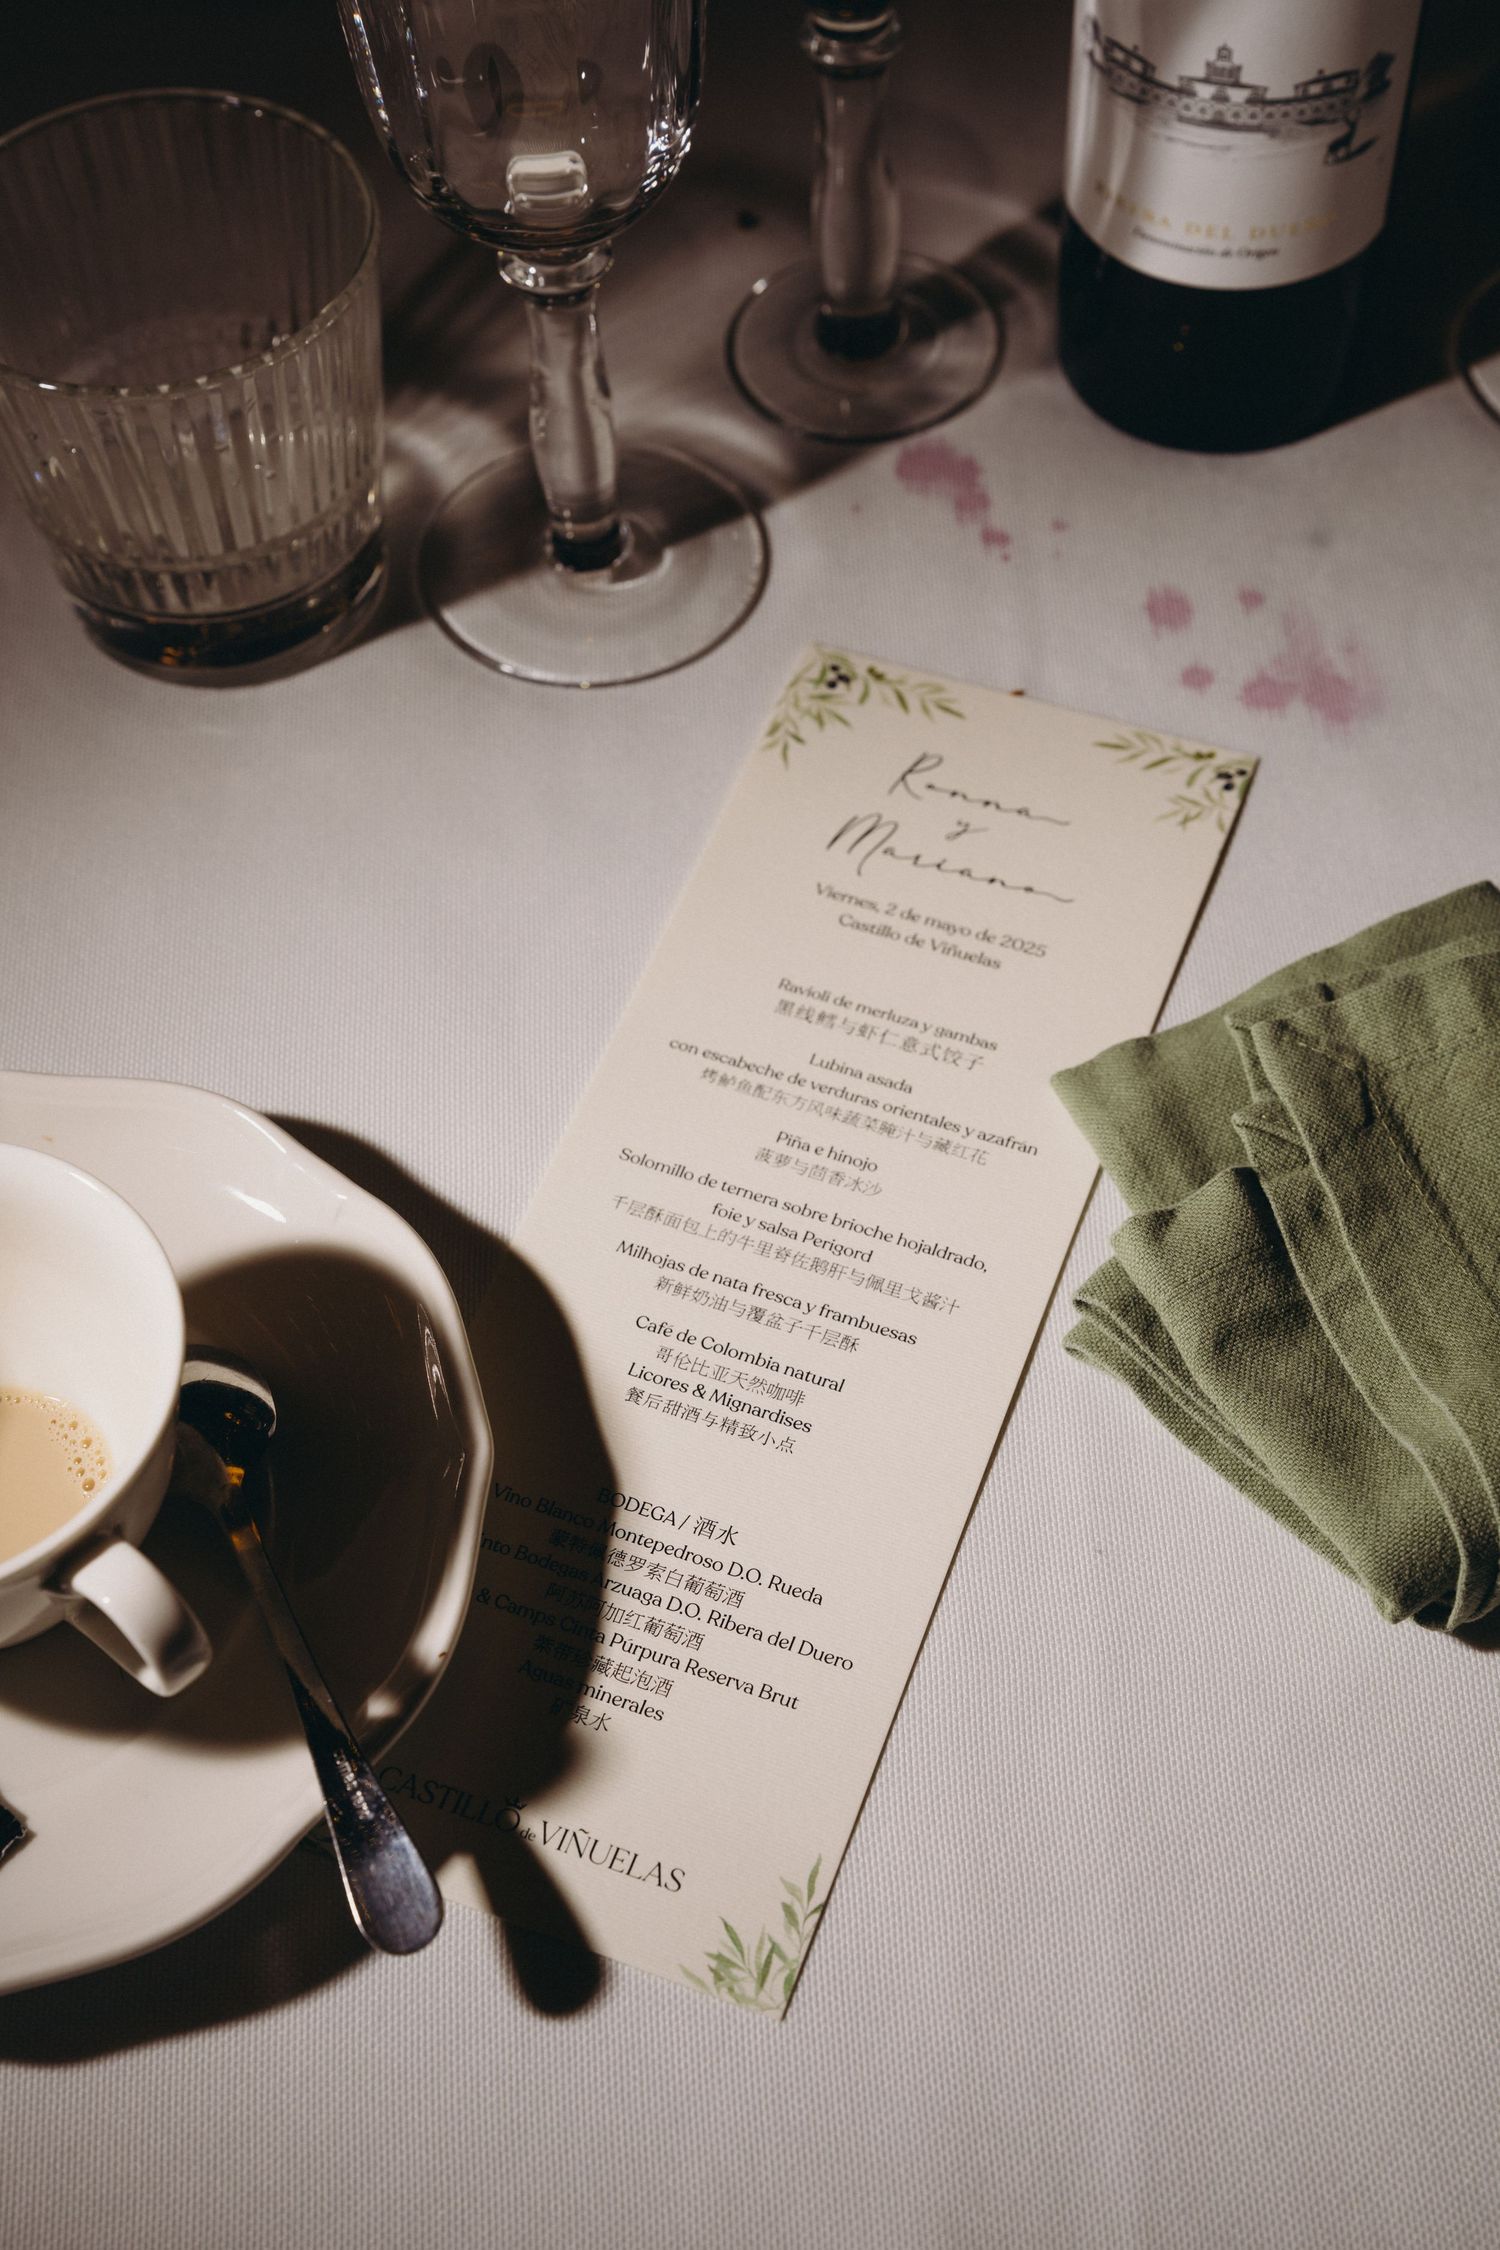 DEL
Denominación de Origen
Ronna
y
Mariano
Viernes, 2 de mayo de 2025
Castillo de Viñuelas
Ravioli de merluza y gambas
黑线鳕与虾仁意式饺子
Lubina asada
con escabeche de verduras orientales y azafrán
烤鲈鱼配东方风味蔬菜腌汁与藏红花
Piña e hinojo
菠萝与茴香冰沙
Solomillo de ternera sobre brioche hojaldrado,
foie y salsa Perigord
千层酥面包上的牛里脊佐鹅肝与佩里戈酱汁
Milhojas de nata fresca y frambuesas
新鲜奶油与覆盆子千层酥
Café de Colombia natural
哥伦比亚天然咖啡
Licores & Mignardises
餐后甜酒与精致小点
BODEGA / 酒水
Vino Blanco Montepedroso D.O. Rueda
蒙特佩德罗索白葡萄酒
nto Bodegas Arzuaga D.O. Ribera del Duero
阿苏阿加红葡萄酒
& Camps Cinta Púrpura Reserva Brut
紫带珍藏起泡酒
Aguas minerales
矿泉水
CASTILLO de VIÑUELAS